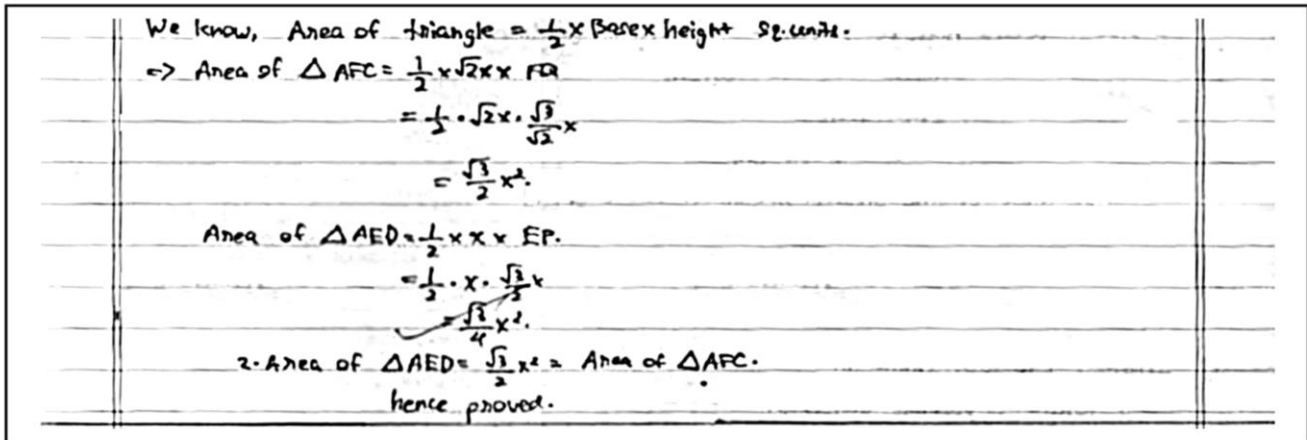 We know, Area of triangle = 1/2 x Base x height sq. units.
=> Area of △ AFC = 1/2 x √2x x FQ
= 1/2 · √2x · √3/√2 x
= √3/2 x².
Area of △AED = 1/2 x x x EP.
= 1/2 · x · √3/2 x
= √3/4 x².
2 · Area of △AED = √3/2 x² = Area of △AFC.
hence proved.